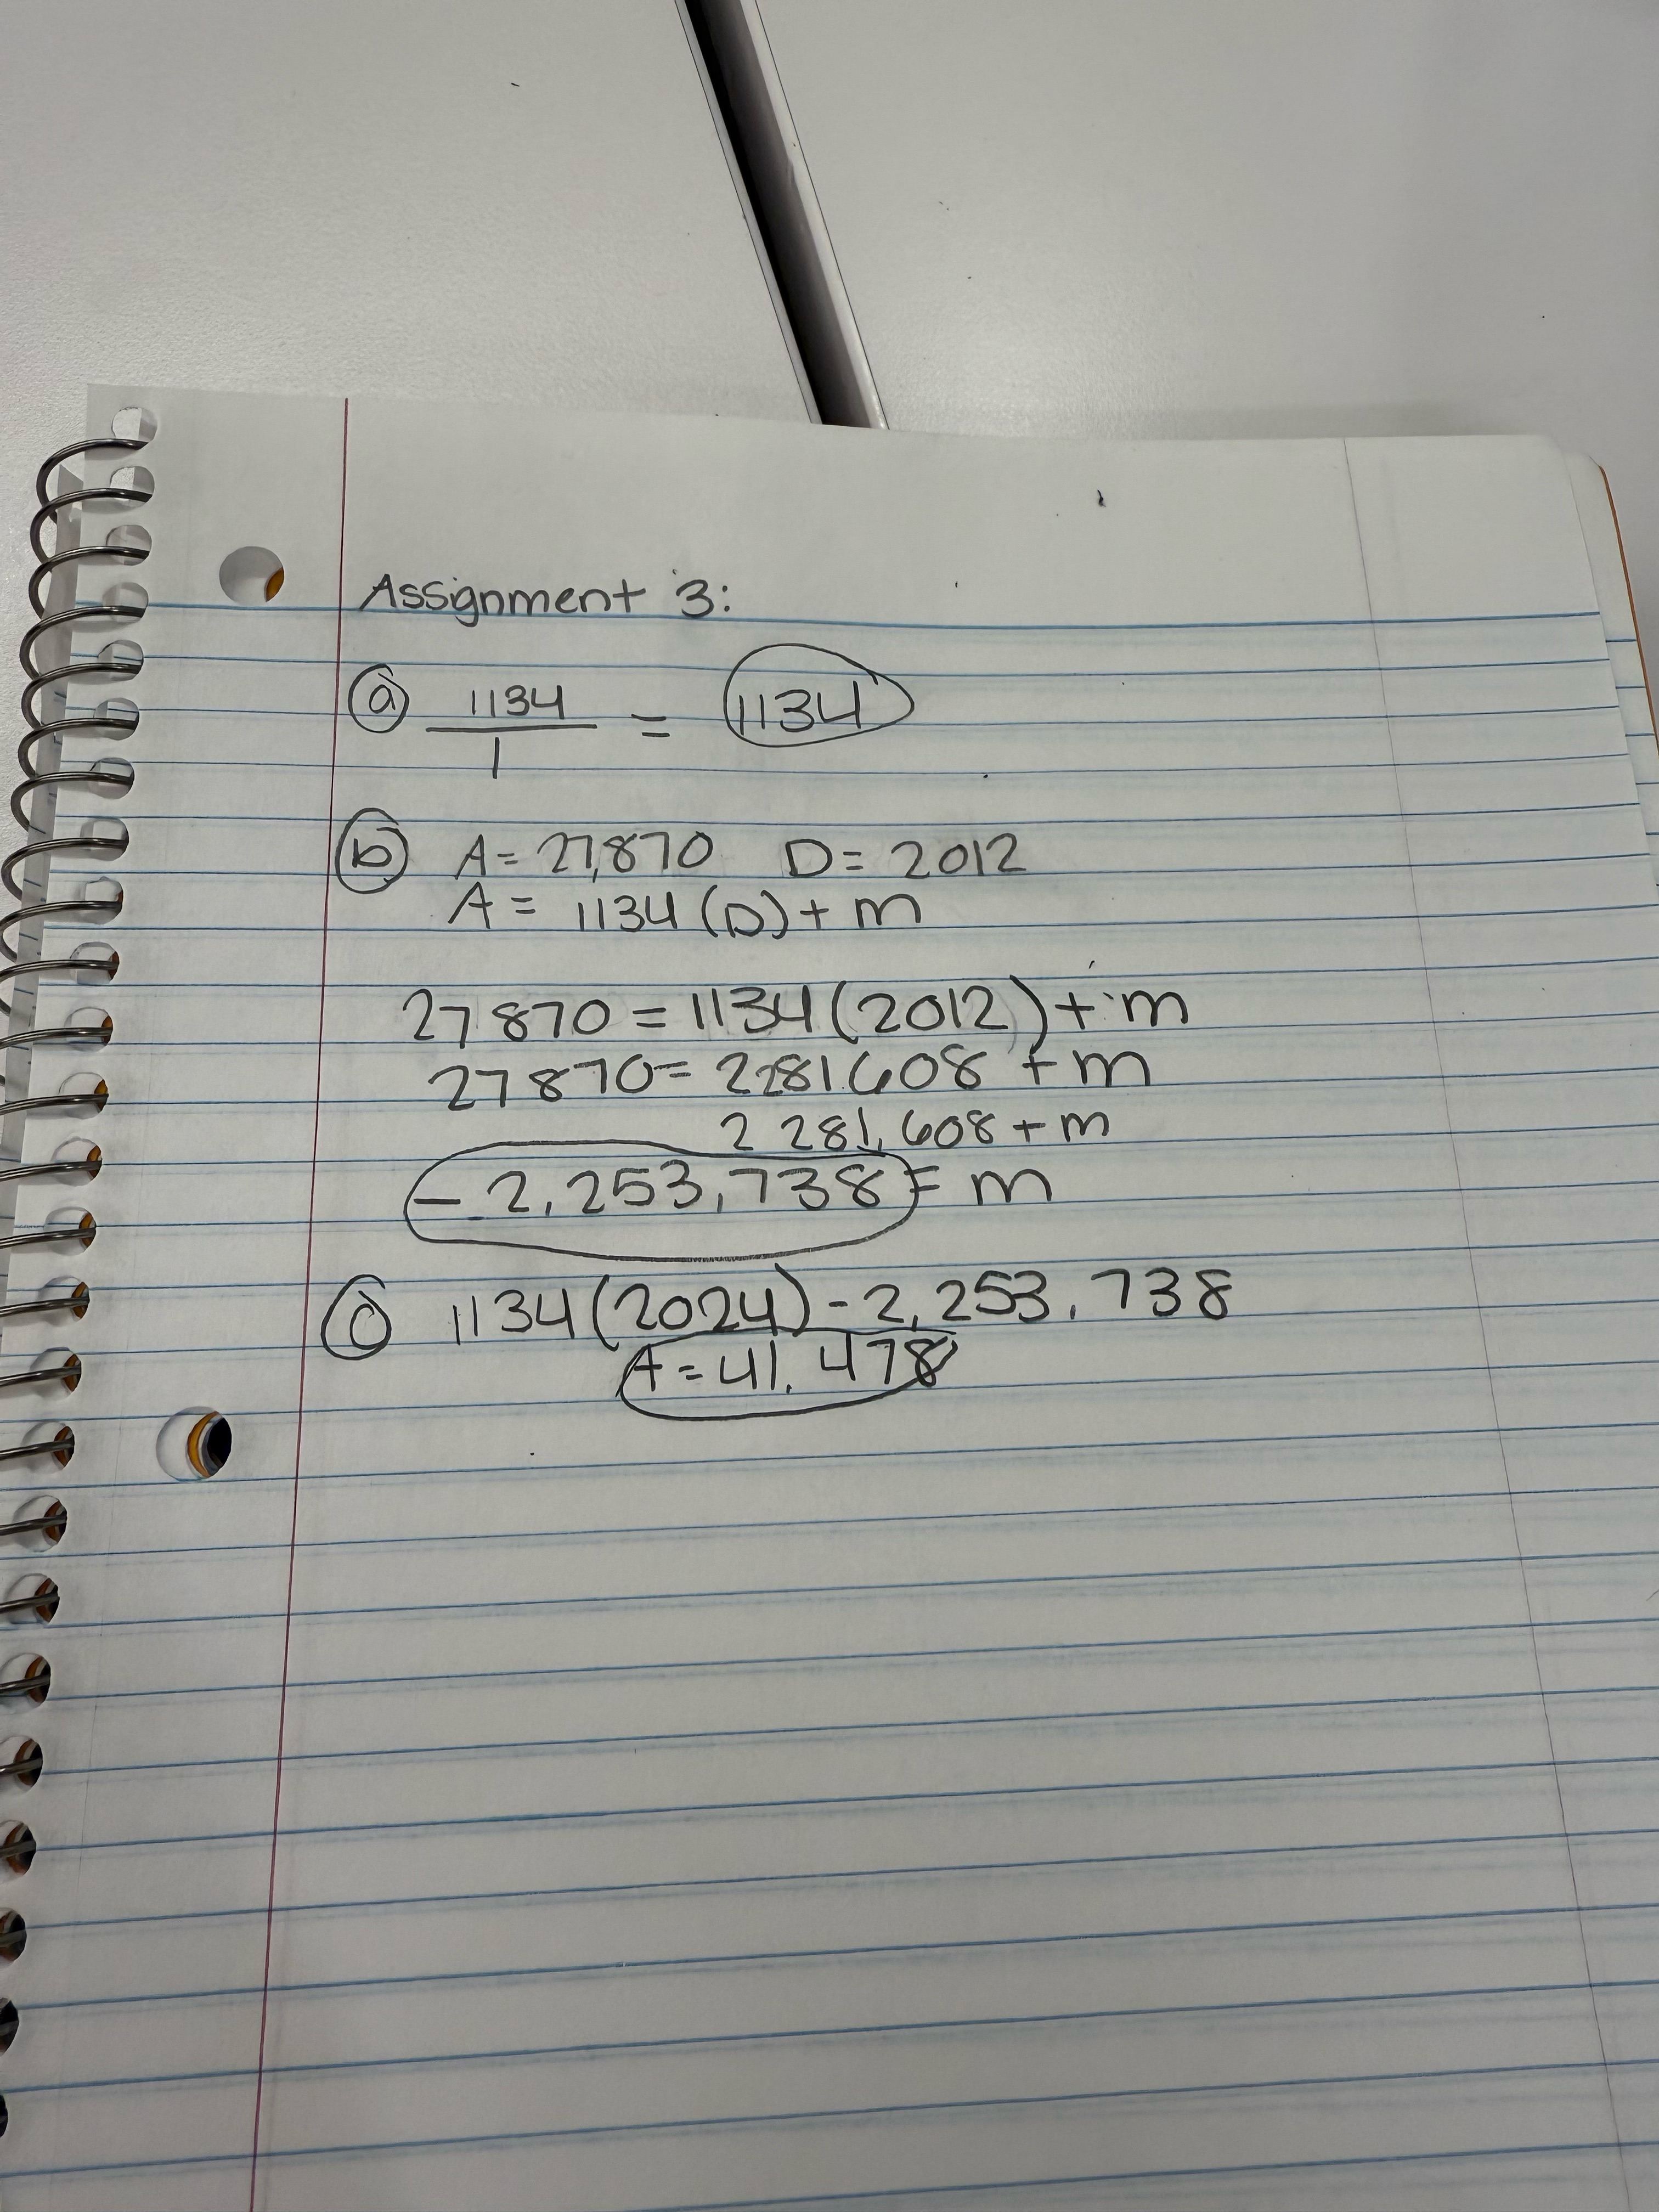 Assignment 3:
ⓐ 1134
1
= 1134
ⓑ A = 27,870 D = 2012
A = 1134 (D) + m
27870 = 1134 (2012) + m
27870 = 2281608 + m
2 281,608 + m
- 2,253,738 = m
ⓒ 1134 (2024) - 2,253,738
A = 41,478